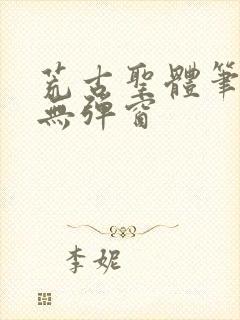 荒古聖體筆
無彈窗
李妮